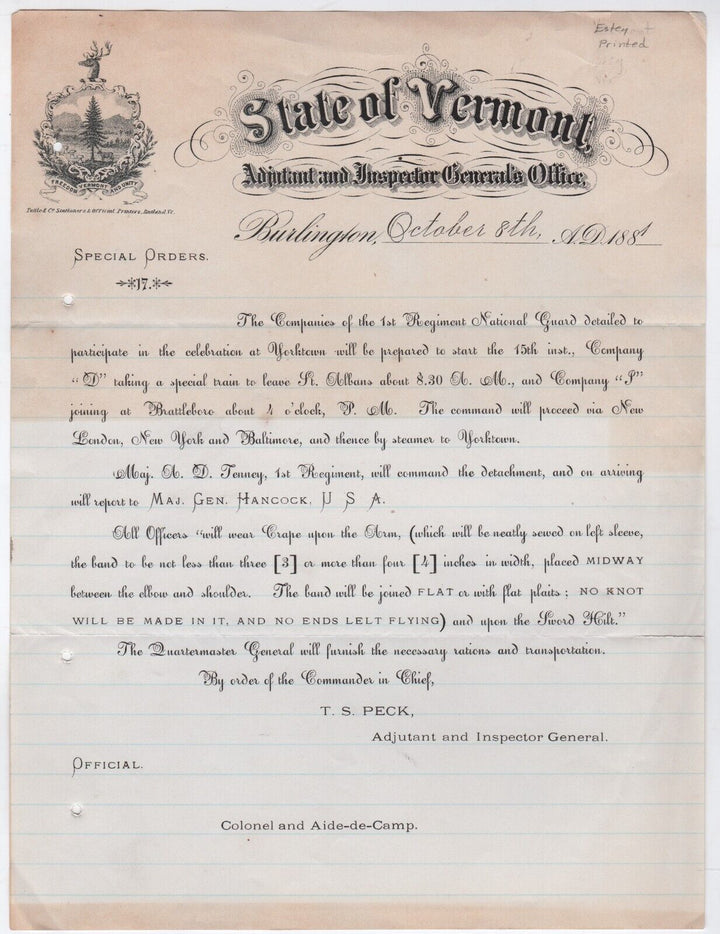 Estey
Printed
State of Vermont,
Adjutant and Inspector General's Office,
FREEDOM VERMONT AND UNITY
Tuttle & Co Stationers & Official Printers, Rutland, Vt.
Burlington, October 8th, A.D. 1881
SPECIAL ORDERS.
17.
The Companies of the 1st Regiment National Guard detailed to
participate in the celebration at Yorktown will be prepared to start the 15th inst., Company
"D" taking a special train to leave St. Albans about 8.30 A. M., and Company "I"
joining at Brattleboro about 4 o'clock, P. M. The command will proceed via New
London, New York and Baltimore, and thence by steamer to Yorktown.
Maj. A. D. Tenney, 1st Regiment, will command the detachment, and on arriving
will report to MAJ. GEN. HANCOCK, U S A.
All Officers "will wear Crape upon the Arm, (which will be neatly sewed on left sleeve,
the band to be not less than three [3] or more than four [4] inches in width, placed MIDWAY
between the elbow and shoulder. The band will be joined FLAT or with flat plaits; NO KNOT
WILL BE MADE IN IT, AND NO ENDS LELT FLYING) and upon the Sword Hilt."
The Quartermaster General will furnish the necessary rations and transportation.
By order of the Commander in Chief,
T. S. PECK,
Adjutant and Inspector General.
OFFICIAL.
Colonel and Aide-de-Camp.